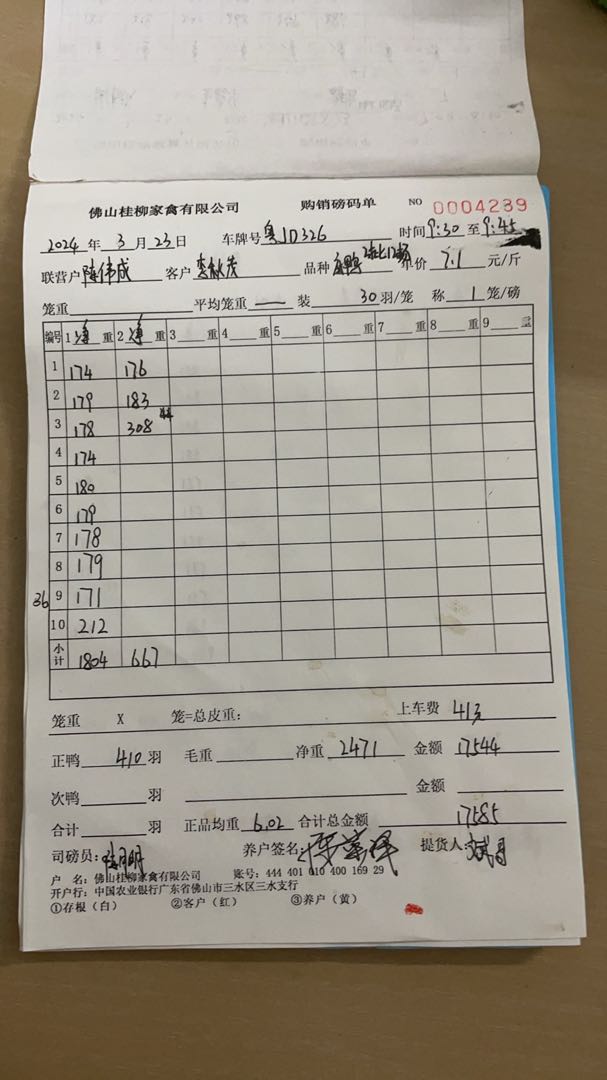 佛山桂柳家禽有限公司 购销磅码单 NO 0004239
2024 年 3 月 23 日 车牌号 粤JD326 时间 9:30 至 9:45
联营户 陈伟成 客户 李秋茂 品种 单价 7.1 元/斤
笼重 平均笼重 — 装 30 羽/笼 称 1 笼/磅
编号 1 净 重 2 净 重 3 重 4 重 5 重 6 重 7 重 8 重 9 重
1 174 176
2 179 183
3 178 308
4 174
5 180
6 179
7 178
8 179
36 9 171
10 212
小计 1804 667
笼重 X 笼=总皮重: 上车费 41元
正鸭 410 羽 毛重 净重 2471 金额 17544
次鸭 羽 金额
合计 羽 正品均重 6.02 合计总金额 17585
司磅员: 养户签名: 提货人:
户 名: 佛山桂柳家禽有限公司 账号: 444 401 010 400 169 29
开户行: 中国农业银行广东省佛山市三水区三水支行
①存根(白) ②客户(红) ③养户(黄)